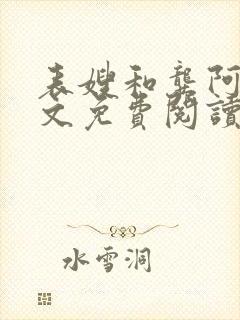 表嫂和龚阿
文免費閱讀
水雪洞